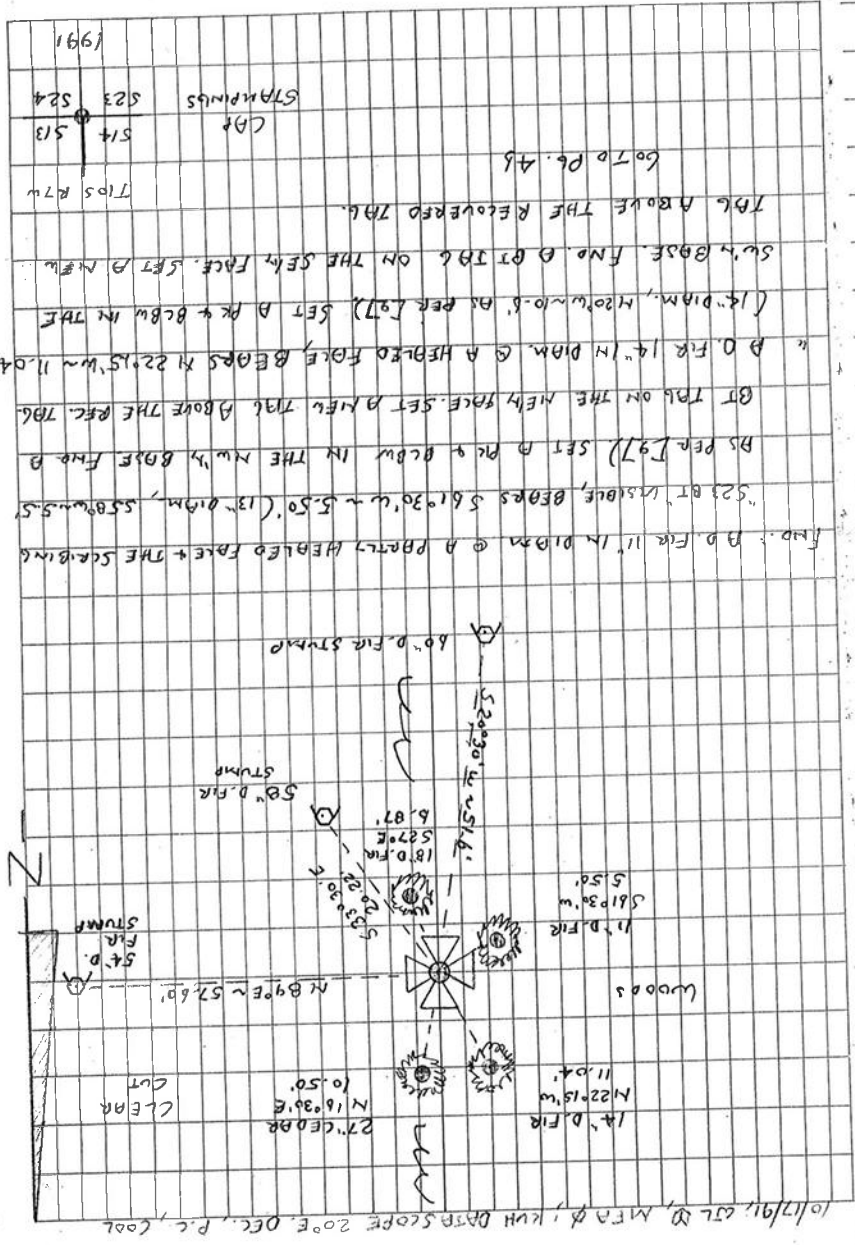 10/17/91; CJL, MFA; KVH DATASCOPE 20°E. DEC., P.C., COOL
14" D.FIR
N22°15'W
11.04'
27" CEDAR
N 16°30'E
10.50'
CLEAR
CUT
WOODS
N 89°E ~ 57.60'
54" D.
FIR
STUMP
N
11" D.FIR
S61°30'W
5.50'
18" D.FIR
S27°E
6.87'
S 33°30'E
20.22'
58" D.FIR
STUMP
S 20°30'W ~ 51.6'
60" D.FIR STUMP
FND.: A D. FIR 11" IN DIAM. @ A PARTLY HEALED FACE & THE SCRIBING
"S23 BT" VISIBLE, BEARS S61°30'W ~ 5.50' (13" DIAM., S58°W ~ 5.5'
AS PER [97]) SET A PK & BLBW IN THE NW'N BASE FND A
BT TAG ON THE NE'N FACE. SET A NEW TAG ABOVE THE REC. TAG.
" A D. FIR 14" IN DIAM. @ A HEALED FACE, BEARS N 22°15'W ~ 11.04
(14" DIAM., N20°W ~ 10.6' AS PER [97]) SET A PK & BLBW IN THE
SW'N BASE. FND. A BT TAG ON THE SE'N FACE. SET A NEW
TAG ABOVE THE RECOVERED TAG.
GO TO PG. 46
CAP
STAMPINGS
T10S R7W
S14 S13
S23 S24
1991